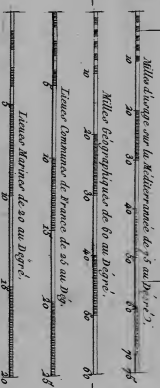 Milles d'usage sur la Méditerranée de 75 au Degré.
10 20 30 40 50 60 70 75
Milles Géographiques de 60 au Dégré.
10 20 30 40 50 60
Lieues Communes de France de 25 au Dég.
5 10 15 20 25
Lieues Marines de 20 au Dégré.
5 10 15 20